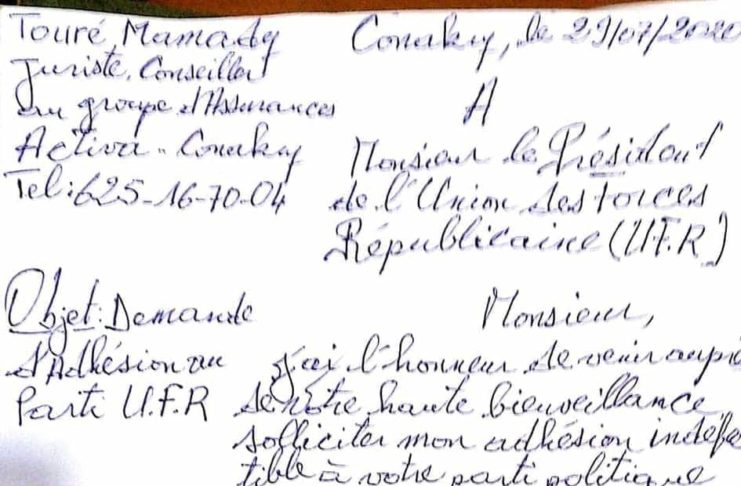 Touré Mamady
Juriste, Conseiller
au groupe d'Assurances
Activa - Conakry
Tel: 625-16-70-04
Conakry, le 29/07/2020
A
Monsieur le Président
de l'Union des forces
Républicaine (U.F.R)
Objet: Demande
d'Adhésion au
Parti U.F.R
Monsieur,
j'ai l'honneur de venir auprè
de votre haute bienveillance
solliciter mon adhésion indéfe
tible à votre parti politique